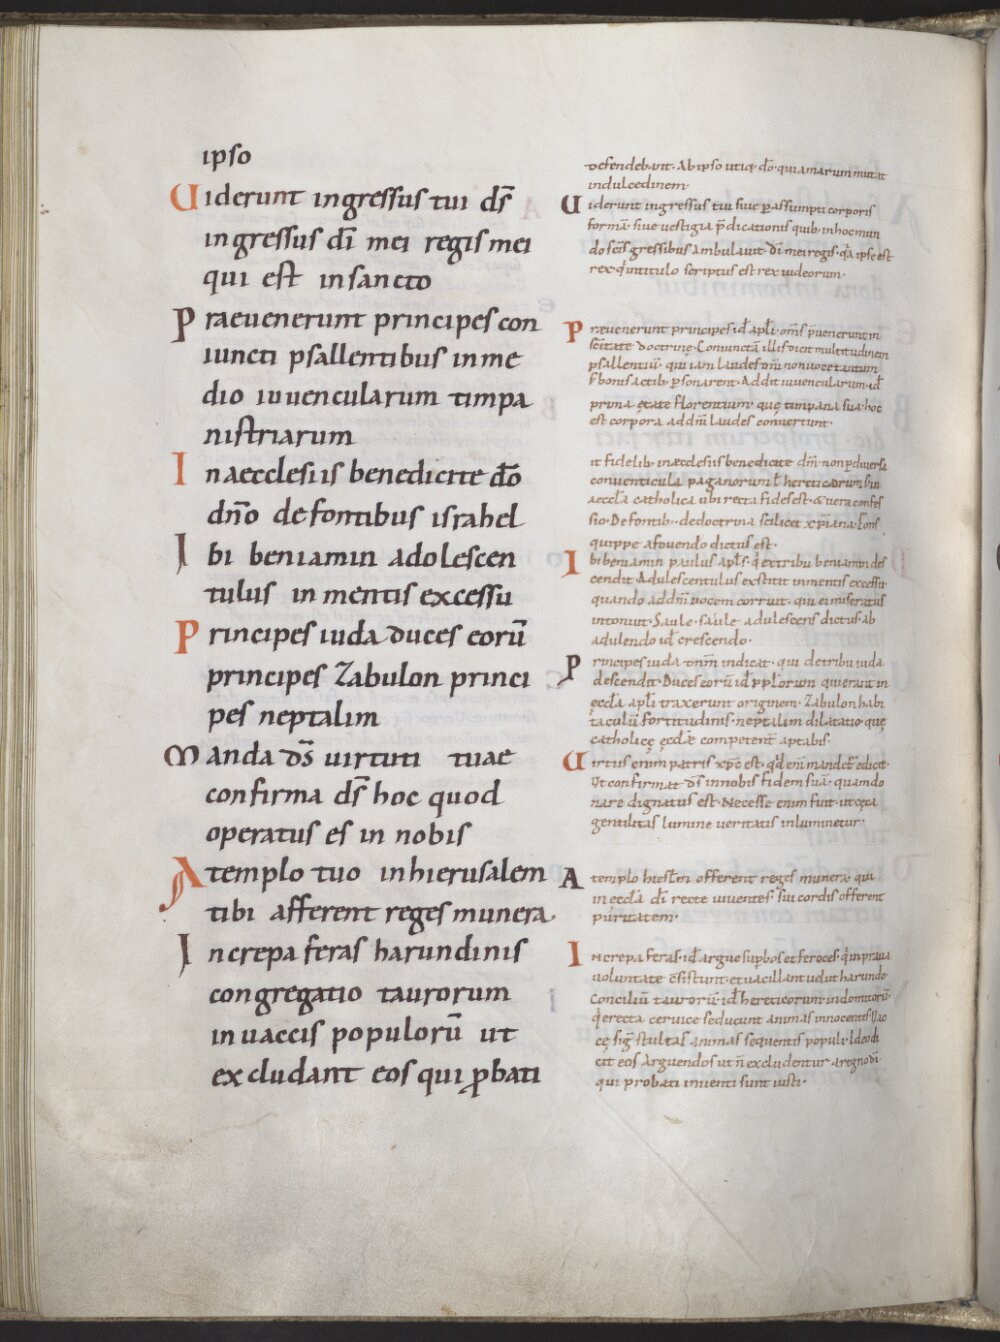 ipso
Uiderunt ingressus tui ds̄
ingressus dī mei regis mei
qui est insancto
Praeuenerunt principes con
iuncti psallentibus inme
dio iuuencularum timpa
nistriarum
Inaecclesiis benedicite dō
dn̄o defontibus israhel
Ibi beniamin adolescen
tulus in mentis excessu
Principes iuda duces eorū
principes Zabulon princi
pes neptalim
Manda ds̄ uirtuti tuae
confirma ds̄ hoc quod
operatus es in nobis
A templo tuo inhierusalem
tibi afferent reges munera
Increpa feras harundinis
congregatio taurorum
inuaccis populorū ut
excludant eos qui ꝓbati
defendebant. Abipso utiq; dō. quiamarum mutat
indulcedinem.
Uiderunt ingressus tui siue ꝑassumpti corporis
formā. siue uestigia p̄dicationis quib; inhocmun
do scīs gressibus ambulauit. Dī mei regis. q̄a ipse est
rex. q̄ intitulo scriptus est rex iudeorum.
Praeuenerunt principes id ap̄li. om̄s p̄uenerunt in
doctrinę. Coniunctā illis dicit multitudinem
psallentiū. qui iam laudes dn̄i non uoce tantum
bonis actib; ꝑsonarent. Addit iuuencularum. id
prima ętate florentium. quę timpana sua. hoc
est corpora addn̄i laudes conuertunt.
it fidelib; inaecclesiis benedicite dn̄m. non ꝑdiuersa
conuenticula paganorum hereticorum. s; in
aeccl̄a catholica ubi recta fides est. & uera confes
sio. De fontib;. dedoctrina scilicet xp̄iana. fons
quippe afouendo dictus est.
Ibi beniamin paulus apl̄s. q̄ extribu beniamin des
cendit. Adulescentulus exstitit inmentis excessu
quando addn̄i uocem corruit. qui ei miseratus
intonuit. Saule. saule adulescens dictus ab
adulendo id crescendo.
Principes iuda dn̄m indicat. qui detribu iuda
descendit. Duces eorū id ꝑpl̄orum qui erant in
ęccl̄a apl̄i traxerunt originem. Zabulon habi
taculū fortitudinis. neptalim dilatatio quę
catholicę ęccl̄ae competent̄ aptabis.
Uirtus enim patris xp̄c est. q̄d enī mandet̄ edicit.
Ut confirmat ds̄ innobis fidem suā. quam do
nare dignatus est. Necesse enim fuit. ut cęca
gentilitas lumine ueritatis inluminetur.
A templo hierl̄m offerent reges munera qui
in ęccl̄a dī recte uiuentes. sui cordis offerent
puritatem.
Increpa feras. id argue suꝑbos et feroces. q̄ inpraua
uoluntate cōsistunt. et uacillant uelut harundo.
Concilium taurorū. id hereticorum indomitorū
q̄ erecta ceruice seducunt animas innocentes. Uac
cę siḡ stultas animas sequentis populi. Ideo di
cit eos arguendos ut n̄ excludentur aregno dī.
qui probati inuenti sunt iusti.